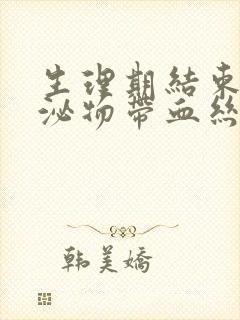 生理期結束
泌物帶血絲
韩美嬌